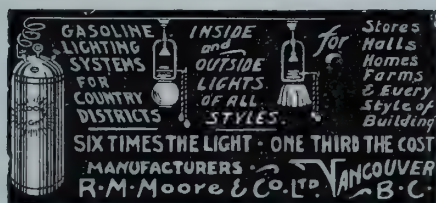 GASOLINE
LIGHTING
SYSTEMS
FOR
COUNTRY
DISTRICTS
INSIDE
and
OUTSIDE
LIGHTS
OF ALL
STYLES.
for
Stores
Halls
Homes
Farms
& Every
Style of
Building
SIX TIMES THE LIGHT - ONE THIRD THE COST
MANUFACTURERS -
R. M. Moore & Co. LTD. VANCOUVER
B. C.